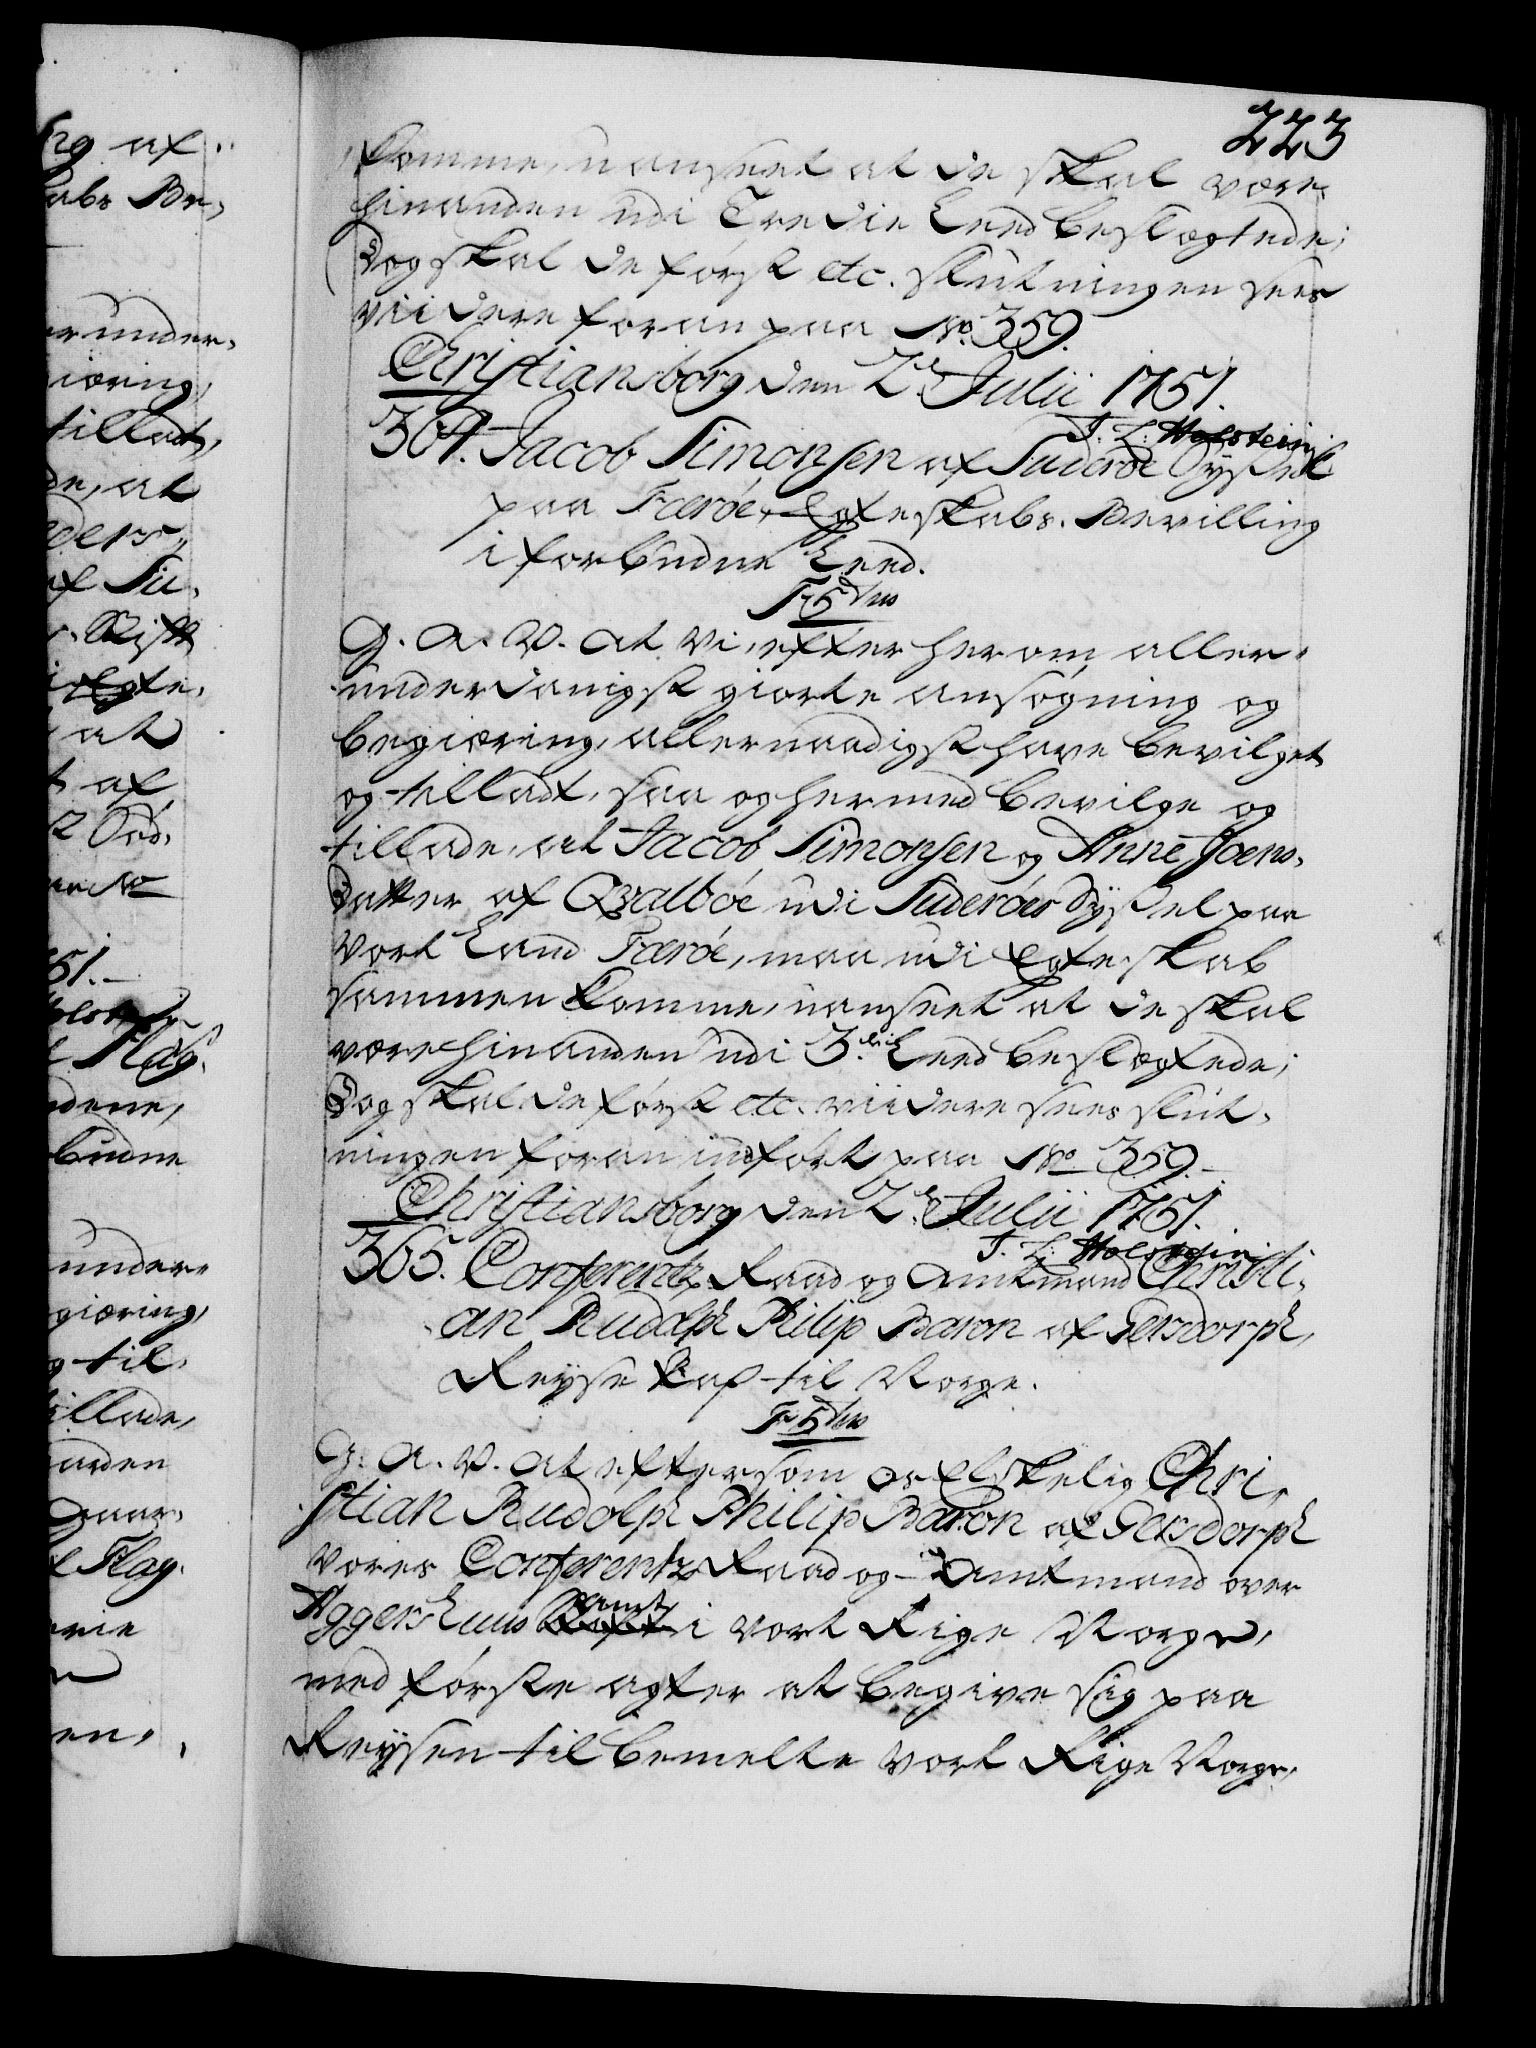 223
komme, uanseet at de skal være
hinanden udi Tredie Leed beslægtede;
Dog skal de først etc. slutningen sees
viidere foran paa No. 359.
Christiansborg den 2. Julii 1751.
J. L. Holstein
364. Jacob Simonsen af Suderøe Syssel
paa Færøe, Egteskabs-Bevilling
i forbudne Leed.
F 5tus
G. A. V. at Vi, efter herom aller-
underdanigst giorte ansøgning og
begiæring, allernaadigst have bevilget
og tilladt, saa og hermed bevilge og
tillade, at Jacob Simonsen og Anne Joens-
Datter af Qvalbøe udi Suderøes Syssel paa
Vort Land Færøe, maa udi Egte-skab
sammen komme, uanseet at de skal
være hinanden udi 3die Leed beslægtede;
Dog skal de først etc. viidere sees slut-
ningen foran indført paa No 359.
Christiansborg den 2. Julii 1751.
J. L. Holstein
365. Conferentz Raad og Amtmand Christi-
an Rudolph Philip Baron af Gersdorph,
Reyse Pas til Norge.
F 5tus
G. A. V. at eftersom os elskelig Chri-
stian Rudolph Philip Baron af Gersdorph
Vores Conferentz Raad og Amtmand over
Aggershuus Amt i Vort Rige Norge,
med første agter at begive sig paa
Reysen til bemelte Vort Rige Norge,